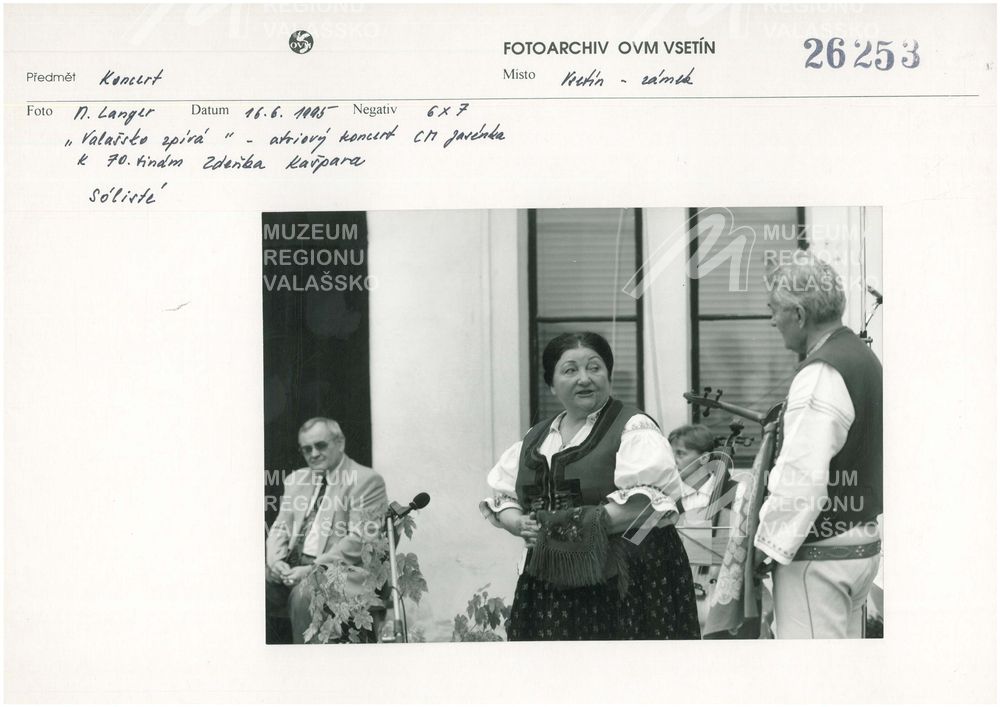 OVM
FOTOARCHIV OVM VSETÍN
26253
Předmět Koncert
Místo Vsetín - zámek
Foto M. Langer Datum 16.6.1995 Negativ 6x7
„Valašsko zpívá" - atriový koncert CM Jasénka
k 70.tinám Zdeňka Kašpara
Sólisté
MUZEUM REGIONU VALAŠSKO
MUZEUM REGIONU VALAŠSKO
MUZEUM REGIONU VALAŠSKO
MUZEUM REGIONU VALAŠSKO
MUZEUM REGIONU VALAŠSKO
MUZEUM REGIONU VALAŠSKO